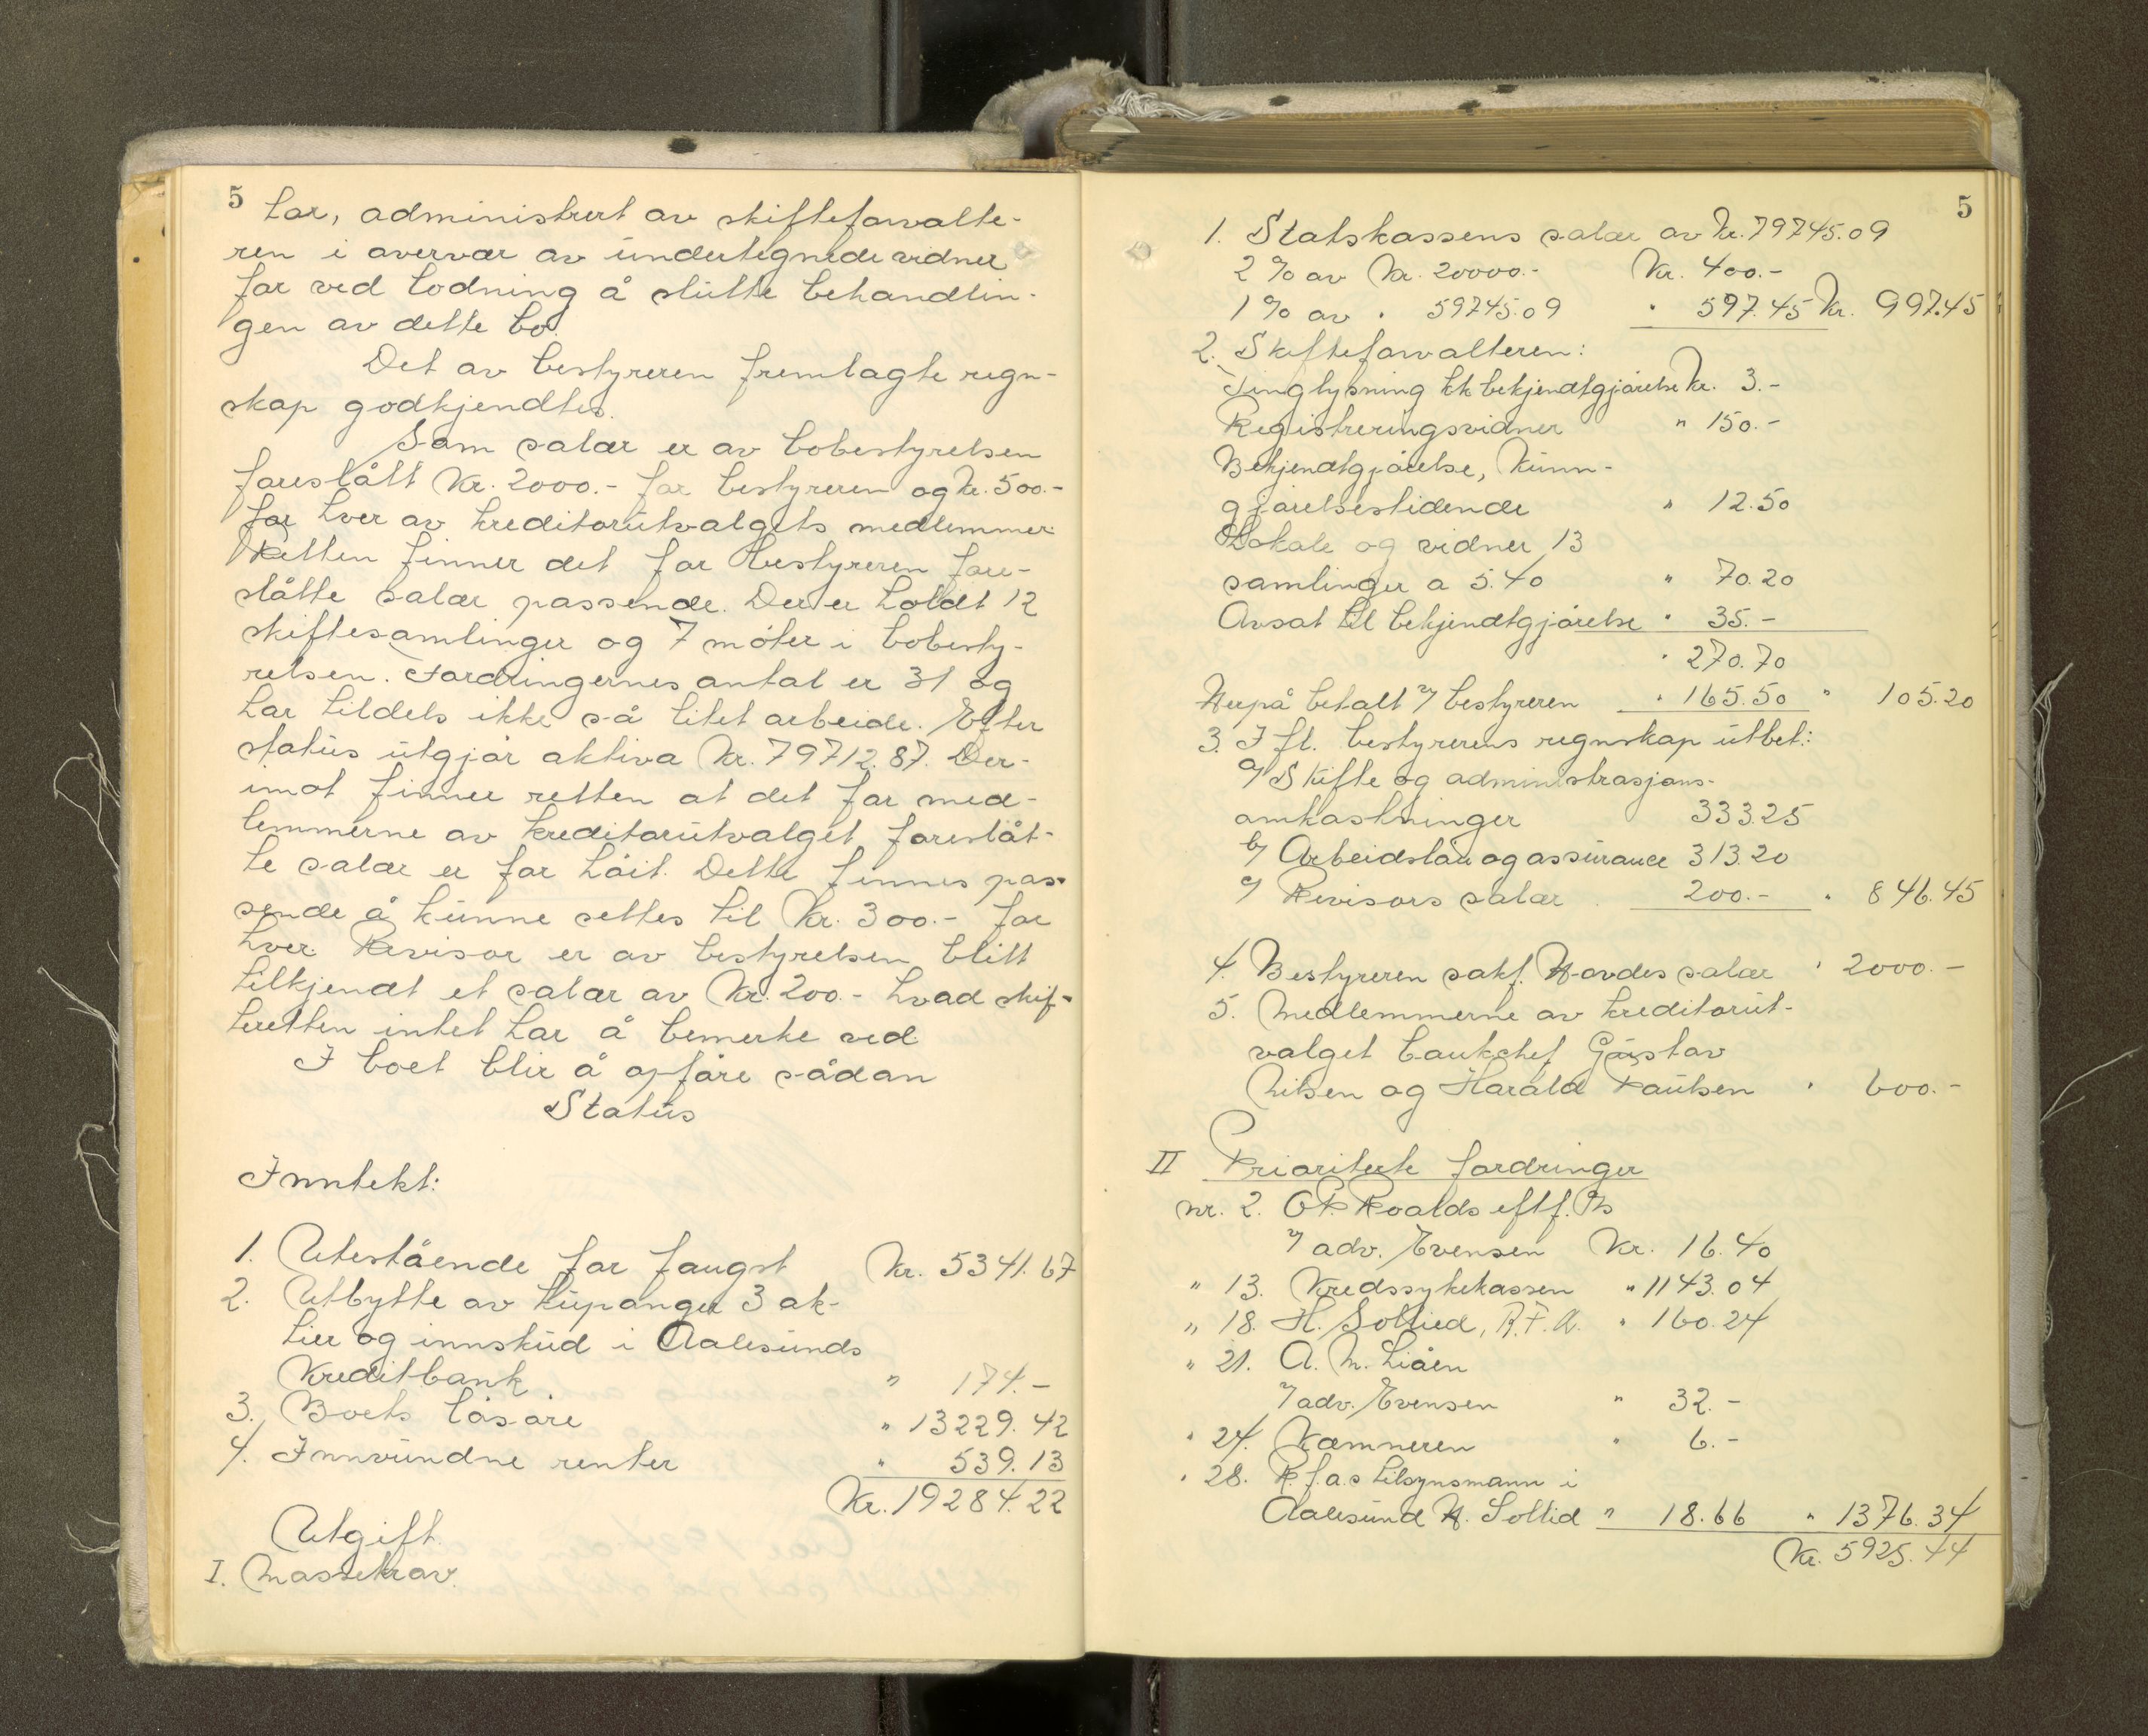 5
tor, administrert av skifteforvalte-
ren i overvær av undertegnede vidner
for ved lodning å slutte behandlin-
gen av dette bo.
Det av bestyreren fremlagte regn-
skap godkjendtes.
Som salær er av bobestyrelsen
foreslått Kr. 2000.- for bestyreren og Kr. 500.-
for hver av kreditorutvalgets medlemmer.
Retten finner det for bestyreren fore-
slåtte salær passende. Der er holdt 12
skiftesamlinger og 7 möter i bobesty-
relsen. Fordringernes antal er 31 og
har tildels ikke så litet arbeide. Efter
status utgjør aktiva Kr. 79712.87. Der-
imot finner retten at det for med-
lemmerne av kreditorutvalget foreslåt-
te salær er for höit. Dette finnes pas-
sende å kunne settes til Kr. 300.- for
hver. Revisor er av bestyrelsen blitt
tilkjendt et salær av Kr. 200.- hvad skif-
teretten intet har å bemerke ved.
I boet blir å opføre sådan
Status
Inntekt:
1. Utestående for fangst Kr. 5341.67
2. Utbytte av Kupanger 3 ak-
tier og innskud i Aalesunds
Kreditbank " 174.-
3. Boets løsøre " 13229.42
4. Innvundne renter " 539.13
Kr. 19284.22
Utgift.
I. Massekrav.
5
1. Statskassens salær av Kr. 79745.09
2 % av Kr. 20000.- Kr. 400.-
1 % av " 59745.09 " 597.45 Kr. 997.45
2. Skifteforvalteren:
Tinglysning kk bekjendtgjørelse Kr. 3.-
Registreringsvidner " 150.-
Bekjendtgjørelse, Kunn-
gjørelsestidende " 12.50
Lokale og vidner 13
samlinger a 5.40 " 70.20
Avsat til bekjendtgjørelse " 35.-
" 270.70
Herpå betalt v/ bestyreren " 165.50 " 105.20
3. I fl. bestyrerens regnskap utbet.:
a/ Skifte og administrasjons-
omkostninger 333.25
b/ Arbeidsløn og assurance 313.20
c/ Revisors salær 200.- " 846.45
4. Bestyreren sakf. Hovdes salær " 2000.-
5. Medlemmerne av kreditorut-
valget bankchef Gustav
Nilsen og Harald Paulsen " 600.-
II Prioriterte fordringer
nr. 2. O.P. Roalds eftf. A/s
v/ adv. Evensen Kr. 16.40
" 13. Kredssykekassen " 1143.04
" 18. H. Sollied, R.F.A. " 160.24
" 21. A. M. Liåen
v/ adv. Evensen " 32.-
" 24. Kæmneren " 6.-
" 28. R.f.a.s tilsynsmann i
Aalesund H. Sollid " 18.66 " 1376.34
Kr. 5925.44